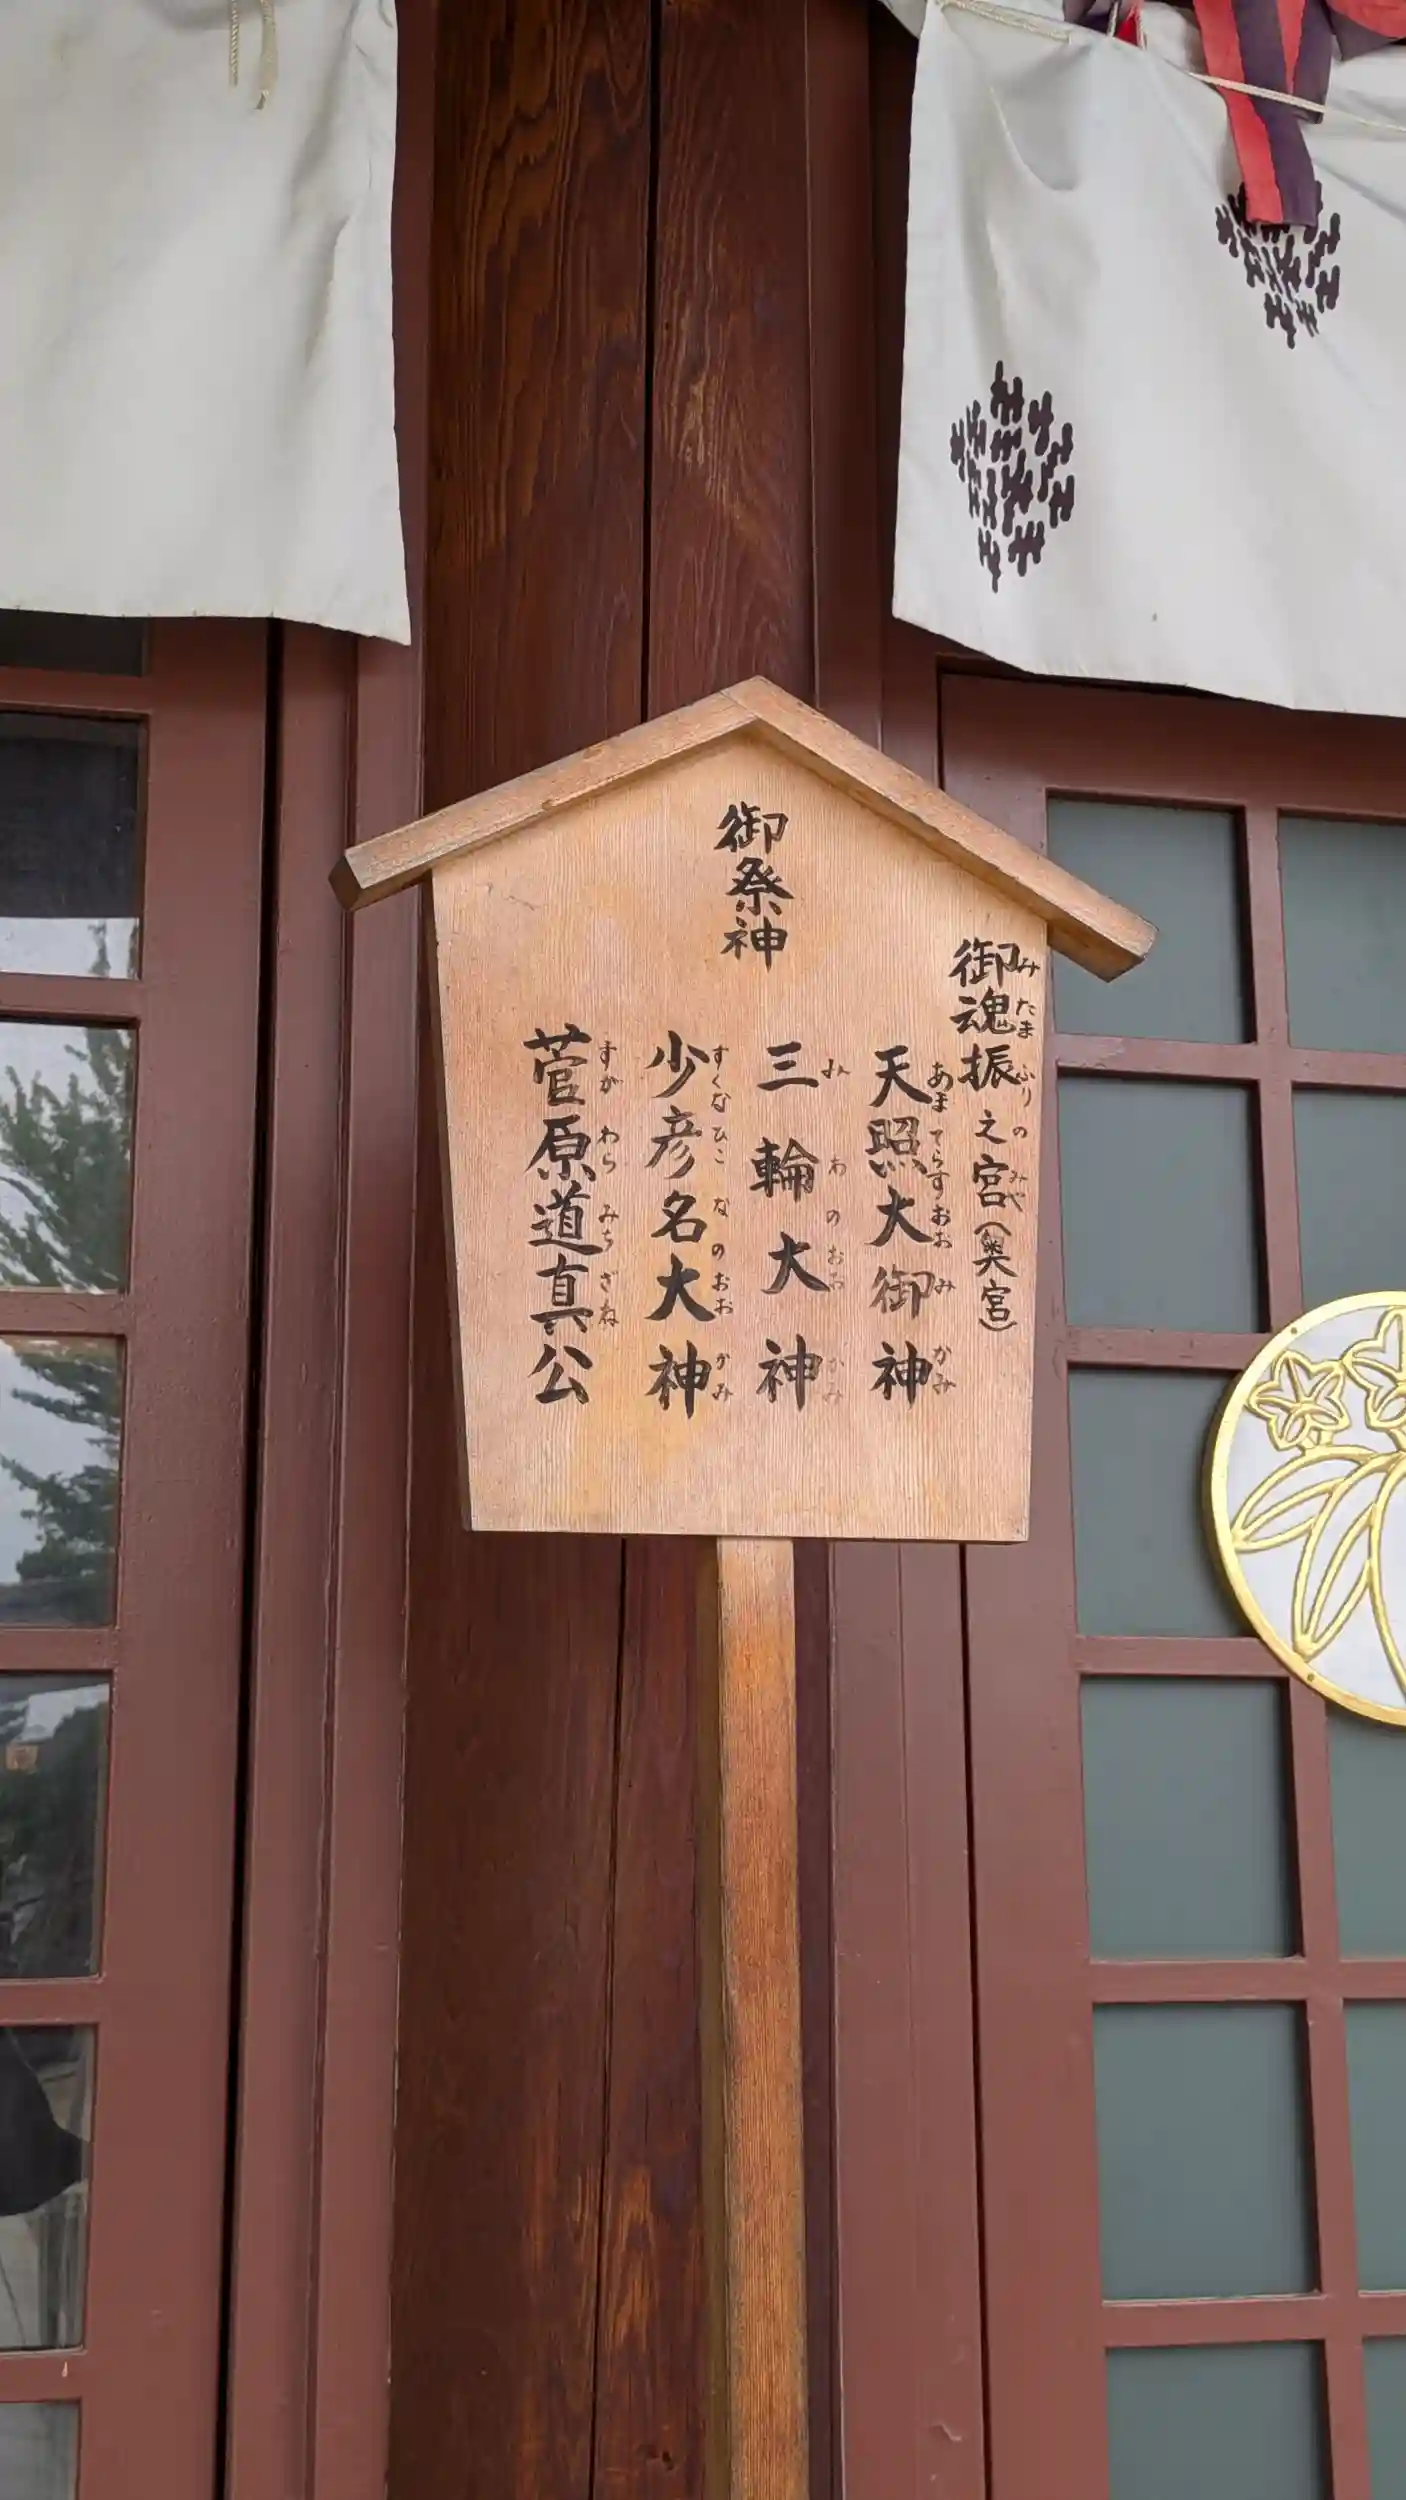 御祭神
御魂振之宮（奥宮）
みたまふりのみや
天照大御神
あまてらすおおみかみ
三輪大神
みわのおおかみ
少彦名大神
すくなひこなのおおかみ
菅原道真公
すがわらみちざね